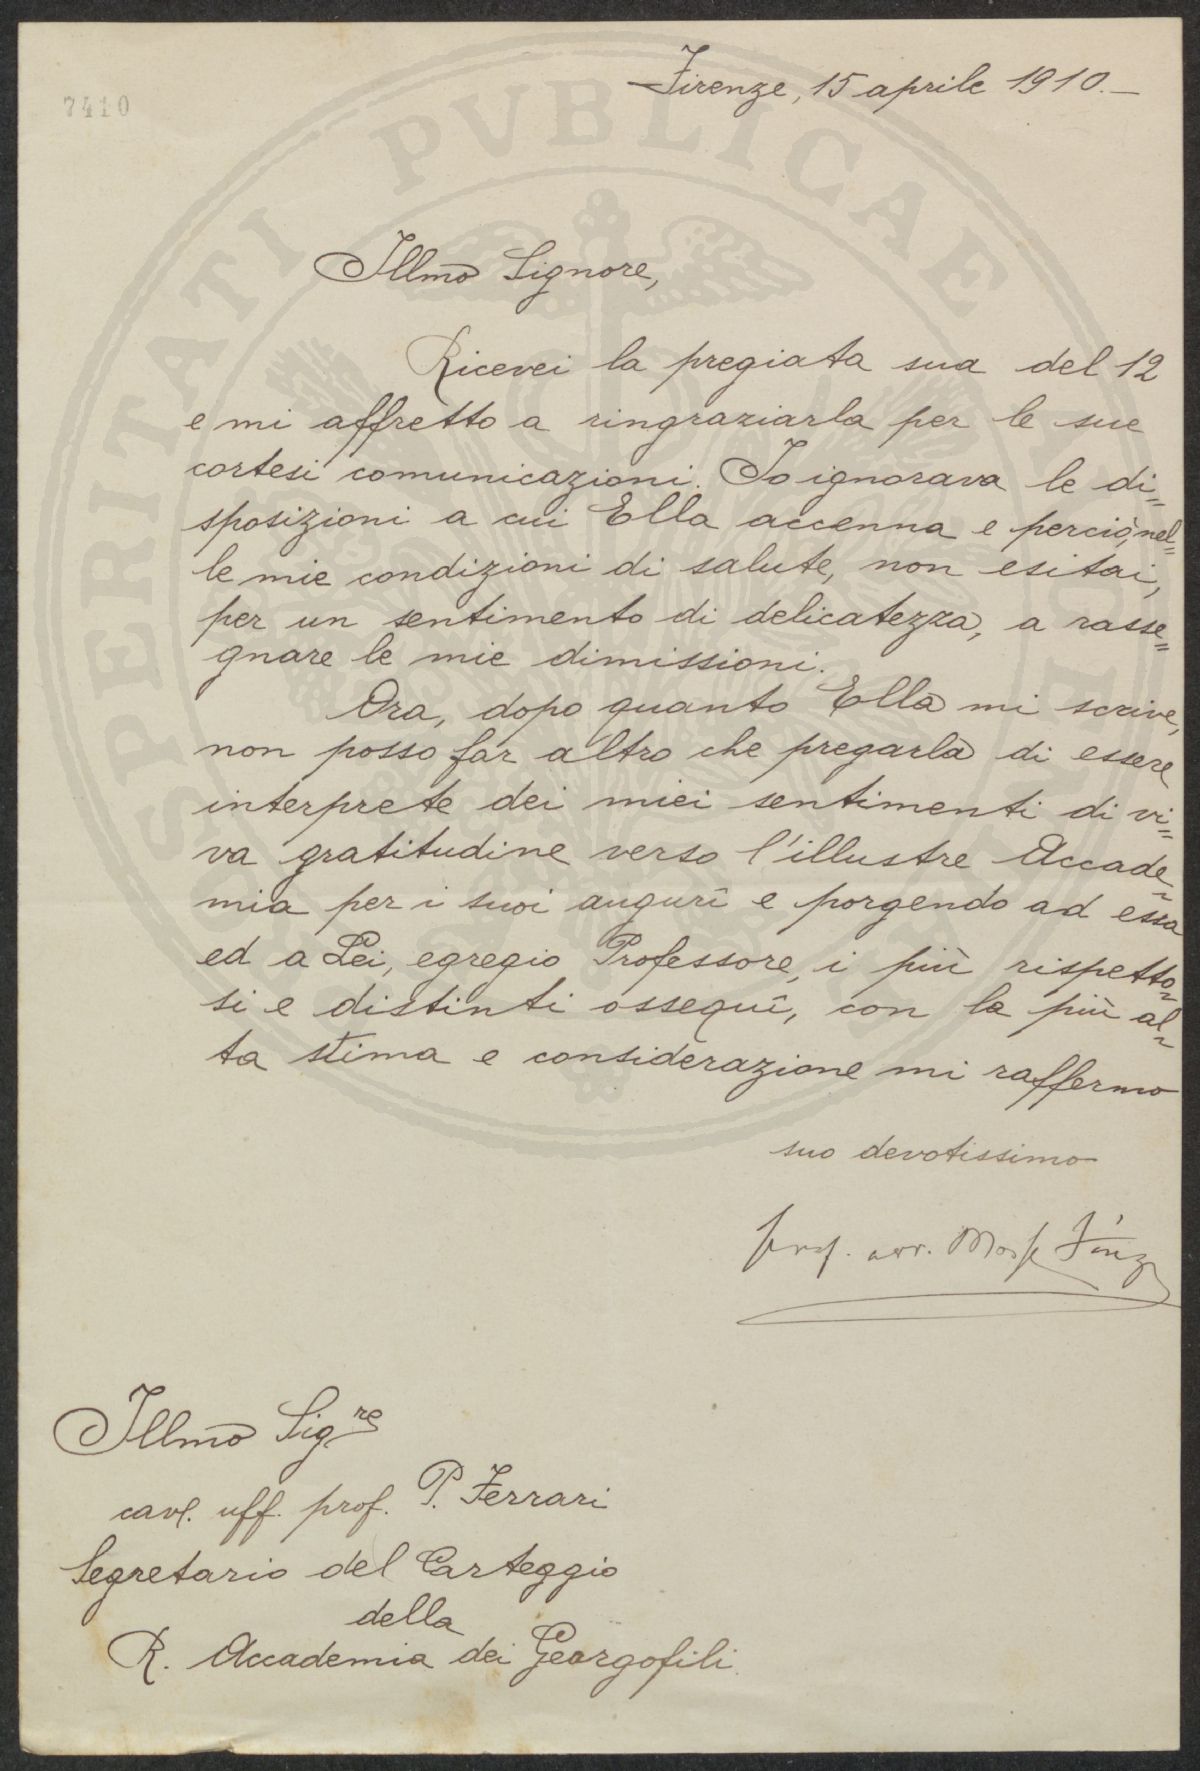 Firenze, 15 aprile 1910.—
7410
Illmo Signore,
Ricevei la pregiata sua del 12
e mi affretto a ringraziarla per le sue
cortesi comunicazioni. Io ignorava le di=
sposizioni a cui Ella accenna e perciò, nel=
le mie condizioni di salute, non esitai,
per un sentimento di delicatezza, a rasse=
gnare le mie dimissioni.
Ora, dopo quanto Ella mi scrive,
non posso far altro che pregarla di essere
interprete dei miei sentimenti di vi=
va gratitudine verso l'illustre Accade=
mia per i suoi augurî e porgendo ad essa
ed a Lei, egregio Professore, i più rispetto=
si e distinti ossequî, con la più al=
ta stima e considerazione mi raffermo
suo devotissimo
prof. avv. Finzi
Illmo Sigre
cav. uff. prof. P. Ferrari
Segretario del Carteggio
della
R. Accademia dei Georgofili.
PROSPERITATI PVBLICAE